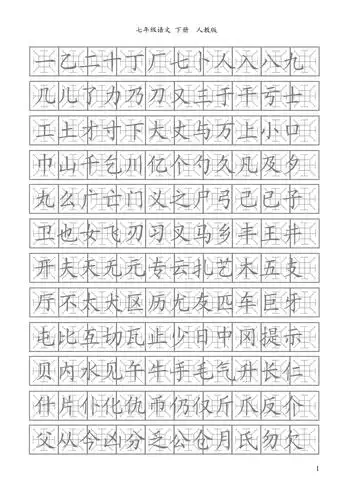 七年级语文 下册 人教版
一乙二十丁厂七卜人入八九
几儿了力乃刀又三于干亏士
工土才寸下大丈与万上小口
巾山千乞川亿个勺久凡及夕
丸么广亡门义之尸弓己已子
卫也女飞刃习叉马乡丰王井
开夫天无元专云扎艺木五支
厅不太犬区历尤友匹车巨牙
屯比互切瓦止少日中冈提示
贝内水见午牛手毛气升长仁
什片仆化仇币仍仅斤爪反介
父从今凶分乏公仓月氏勿欠
1